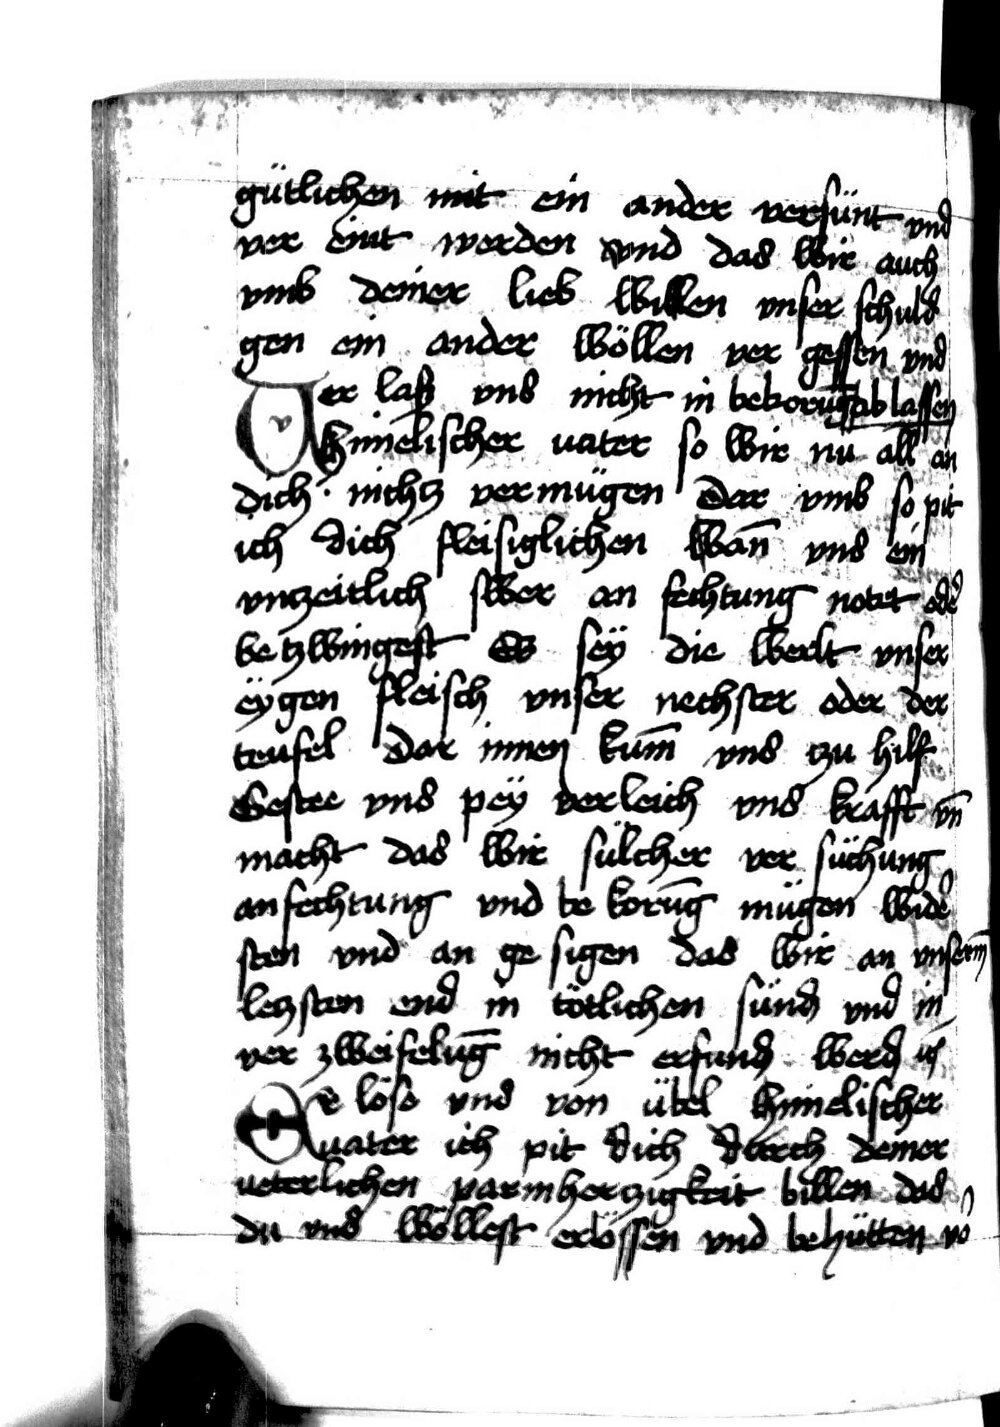 gütlichen mit ein ander versünt vnd
ver eint werden vnd das wir auch
vmb deiner lieb willen vnser schuld
gen ein ander wöllen ver gessen vnd
ab lassen
Ver laß vns nicht in bekorūg
himelischer vater so wir nu all an
dich nichtz vermügen Dar vmb so pit
ich dich fleisiglichen wan̄ vns ein
vnzeitlich swer an fechtung notet oder
betzwinget Es sey die werlt vnser
eÿgen fleisch vnser nechster oder der
teufel Dar innen kum̄ vns tzu hilf
Gestee vns peÿ verleich vns krafft vn̄
macht das wir sülcher ver süchung
anfechtung vnd be korūg mügen wider
sten vnd an ge sigen das wir an vnserm
letzsten end in tötlichen sünden vnd in
ver zweifelūg nicht erfunden werden
Er löse vns von übel himelischer
vater ich pit dich durch deiner
veterlichen parmherzigkeit billen das
du vns wöllest erlössen vnd behütten vō